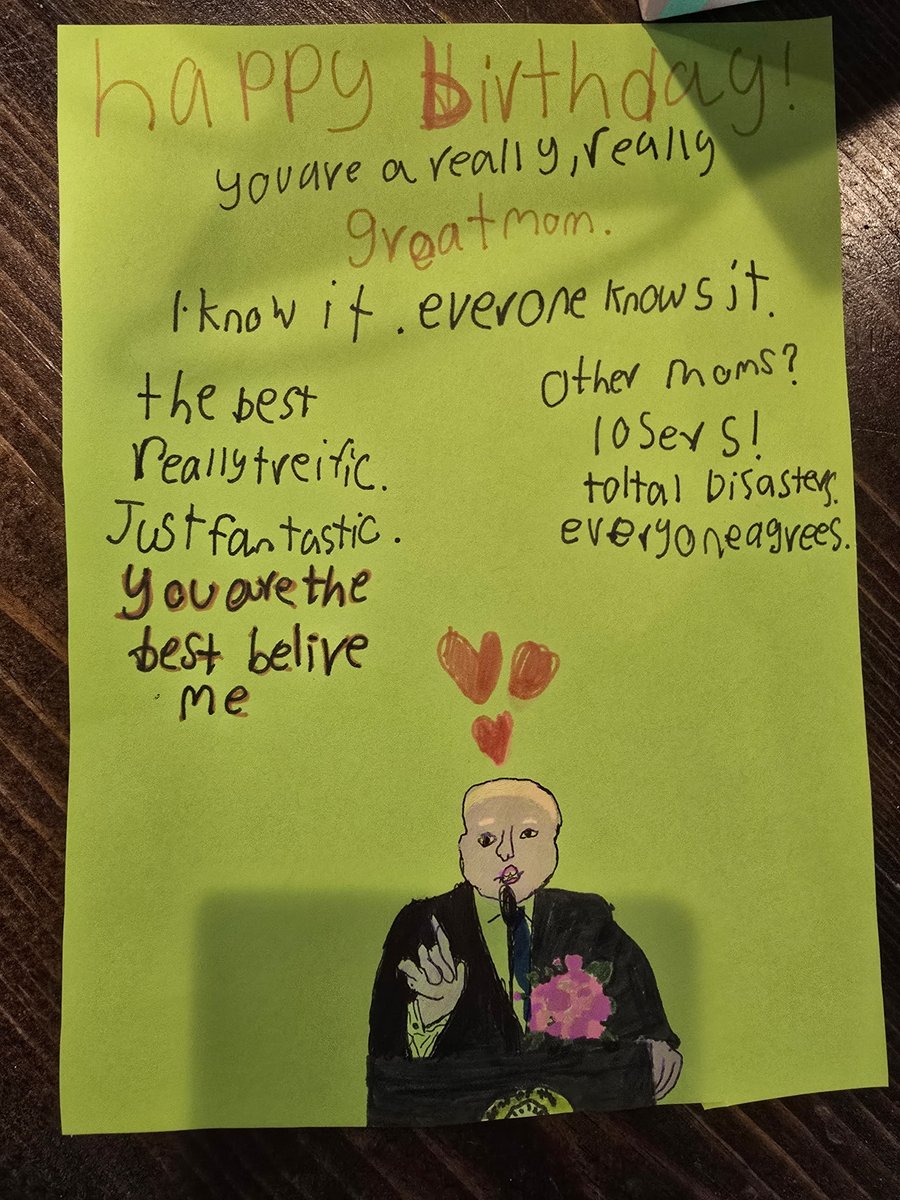 happy birthday!
you are a really, really
great mom.
I know it. everone knows it.
the best
really treific.
Just fantastic.
you are the
best belive
me
Other moms?
losers!
toltal Disasters.
everyone agrees.